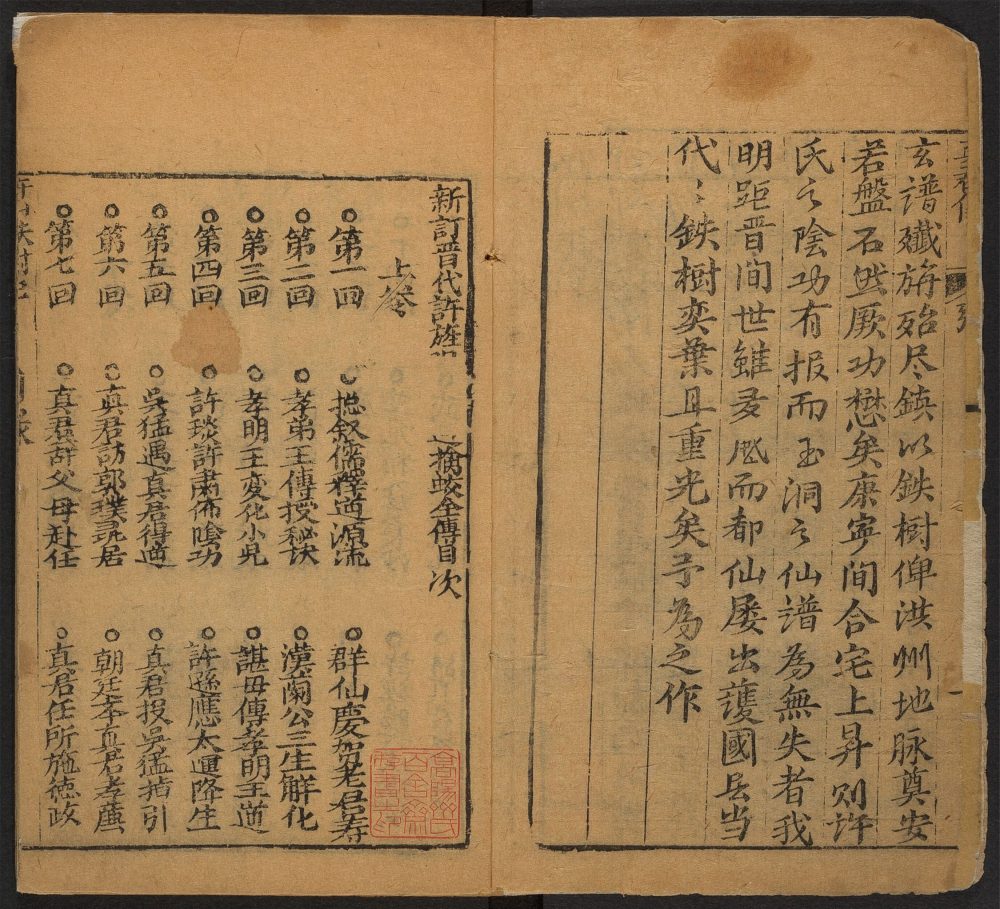 玄譜殲旃殆尽鎮以鉄樹俾洪州地脉奠安
若盤石然厥功懋矣康寧間合宅上昇则許
氏之陰功有报而玉洞之仙譜為無失者我
明距晋間世雖多凞而都仙屡出護國長当
代〻鉄樹奕葉且重光矣予為之作
新訂晋代許旌
擒蛟全傳目次
上巻
第一回 揔叙儒釋道源流 群仙慶贺老君寿
第二回 孝弟王傳授秘诀 漢蘭公三生解化
第三回 孝明王変化小児 諶母傳孝明王道
第四回 許琰許肅佈陰功 許遜應太運降生
第五回 吳猛遇真君得道 真君投吳猛指引
第六回 真君訪郭璞玩居 朝廷举真君孝廉
第七回 真君辞父母赴任 真君任所施德政